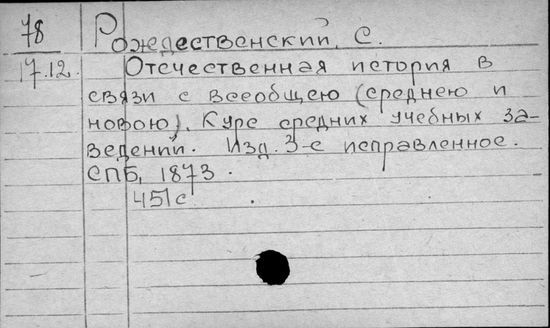 78 Рождественский, С.
17.12. Отечественная история в
связи с всеобщею (среднею и
новою). Курс средних учебных за-
ведений. Изд. 3-е исправленное.
СПБ, 1873.
451с.